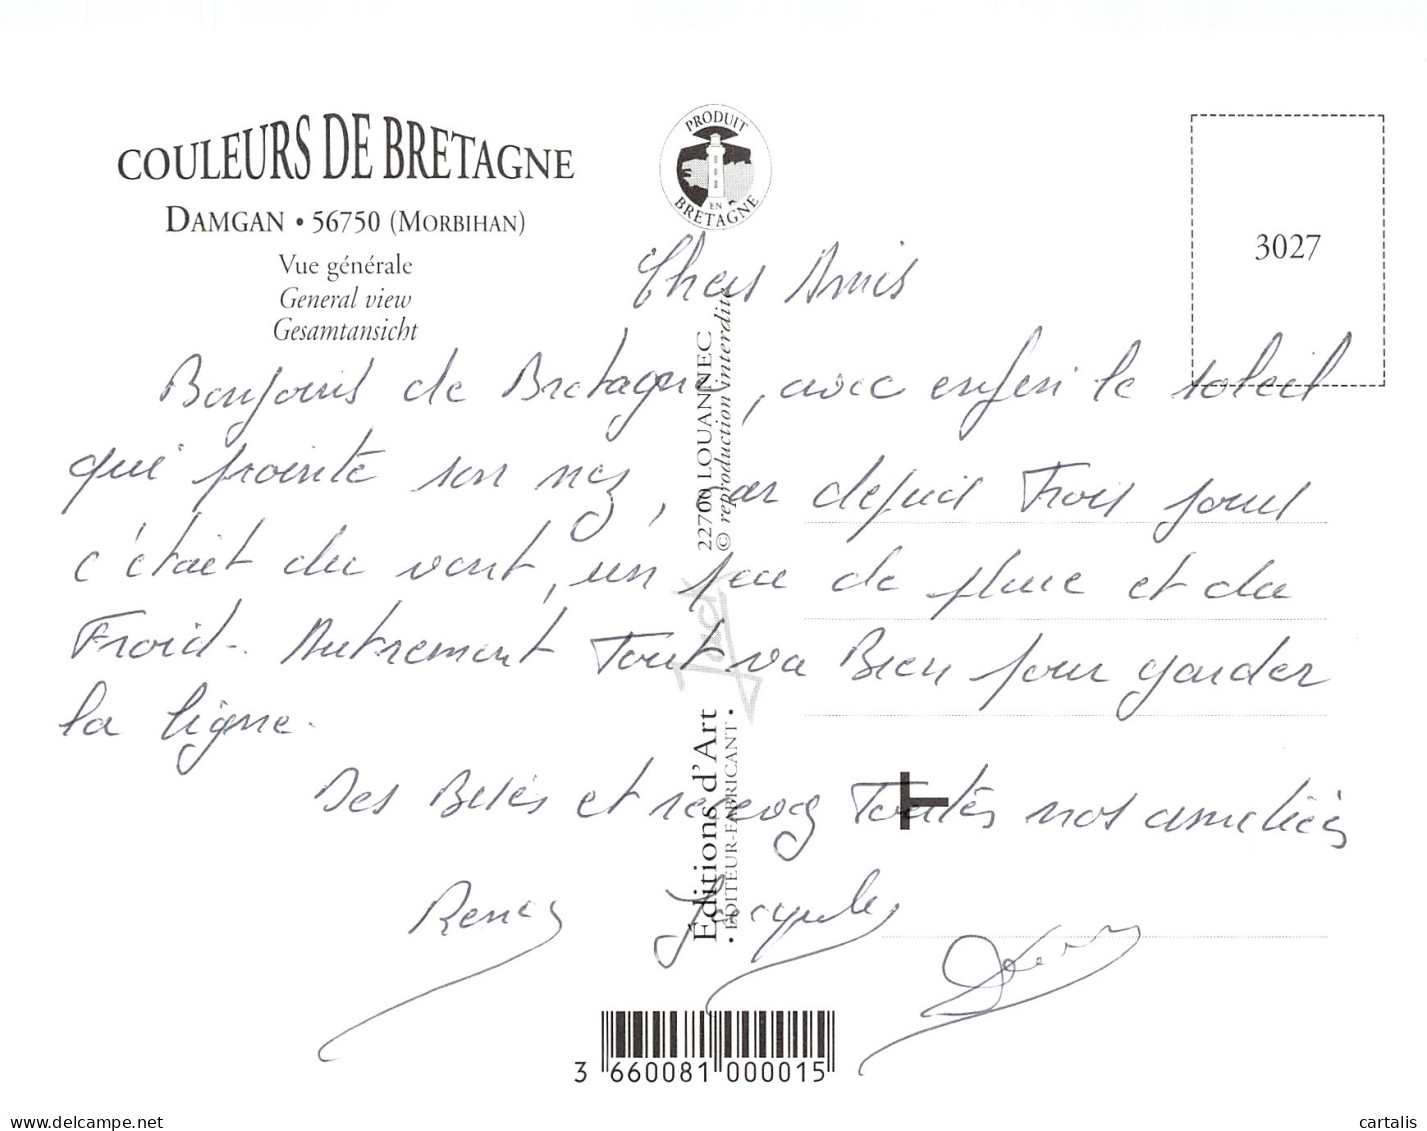 COULEURS DE BRETAGNE
DAMGAN • 56750 (MORBIHAN)
Vue générale
General view
Gesamtansicht
PRODUIT
EN
BRETAGNE
3027
Chers Amis
Bonjours de Bretagne, avec enfin le soleil
qui pointe son nez, car depuis Trois jours
c'était du vent, un peu de pluie et du
Froid. Autrement Tout va Bien pour garder
la ligne.
Des Bisés et recevez Toutes nos amitiés
22700 LOUANNEC
© reproduction interdite
Jack
Éditions d'Art
• ÉDITEUR-FABRICANT •
3 660081 000015
delcampe.net
cartalis